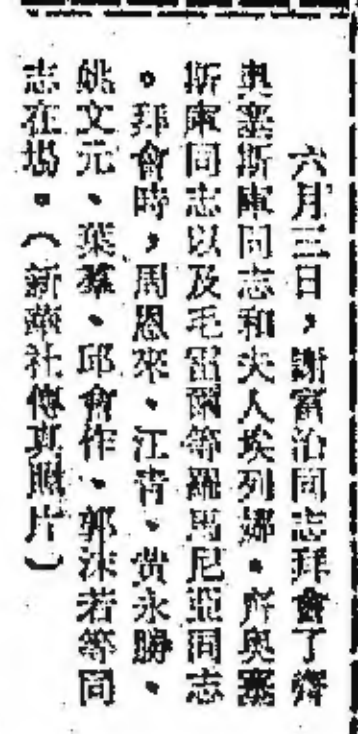 六月三日，謝富治同志拜會了齊
奥塞斯庫同志和夫人埃列娜·齊奥塞
斯庫同志以及毛雷爾等羅馬尼亞同志
。拜會時，周恩來、江青、黄永勝、
姚文元、葉羣、邱會作、郭沫若等同
志在場。（新華社傳真照片）